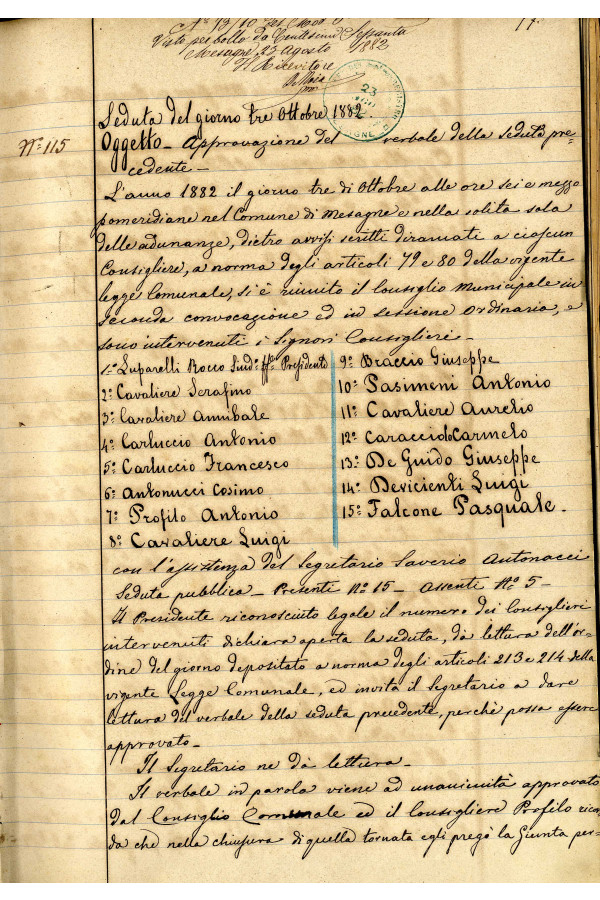 N° 1310 del Mod. 11.
Visto per bollo da Centesimi Sessanta
Mesagne, 23 Agosto 1882
Il Ricevitore
23
Seduta del giorno tre Ottobre 1882.
N° 115
Oggetto - Approvazione del verbale della seduta pre=
cedente -
L'anno 1882 il giorno tre di Ottobre alle ore sei e mezzo
pomeridiane nel Comune di Mesagne e nella solita sala
delle adunanze, dietro avvisi scritti diramati a ciascun
Consigliere, a norma degli articoli 79 e 80 della vigente
legge Comunale, si è riunito il Consiglio Municipale in
seconda convocazione ed in sessione Ordinaria, e
sono intervenuti i Signori Consiglieri -
1° Luparelli Rocco Sind° ff° Presidente
2° Cavaliere Serafino
3° Cavaliere Annibale
4° Carluccio Antonio
5° Carluccio Francesco
6° Antonucci Cosimo
7° Profilo Antonio
8° Cavaliere Luigi
9° Braccio Giuseppe
10° Pasimeni Antonio
11° Cavaliere Aurelio
12° Caracciolo Carmelo
13° De Guido Giuseppe
14° Devicienti Luigi
15° Falcone Pasquale -
con l'assistenza del Segretario Saverio Antonacci
Seduta pubblica - Presenti N° 15 - Assenti N° 5 -
Il Presidente riconosciuto legale il numero dei Consiglieri
intervenuti dichiara aperta la seduta, dà lettura dell'or=
dine del giorno depositato a norma degli articoli 213 e 214 della
vigente Legge Comunale, ed invita il Segretario a dare
lettura del verbale della seduta precedente, perchè possa essere
approvato -
Il Segretario ne dà lettura -
Il verbale in parola viene ad unanimità approvato
dal Consiglio Comunale ed il Consigliere Profilo ricor
da che nella chiusura di quella tornata egli pregò la Giunta per-